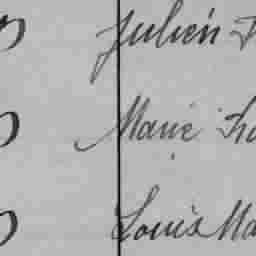 Julien
Marie
Louis Ma